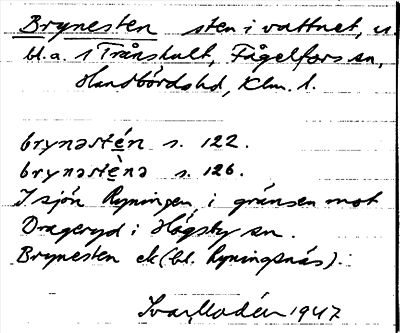 Brynesten sten i vattnet, u.
bl.a. i Trånshult, Fågelfors sn,
Handbörds hd, Klm. l.
brynəstén s. 122.
brynəstènə s. 126.
I sjön Ryningen, i gränsen mot
Drageryd i Högsby sn.
Brynesten ek (bl. Ryningsnäs).
Ivar Modéer 1947